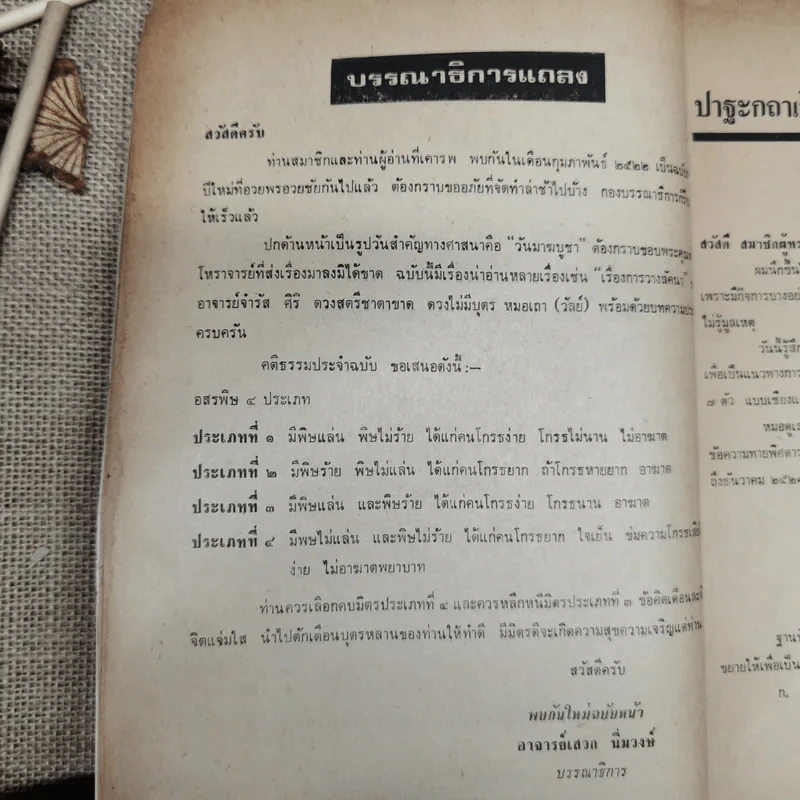 บรรณาธิการแถลง
สวัสดีครับ
ท่านสมาชิกและท่านผู้อ่านที่เคารพ พบกันในเดือนกุมภาพันธ์ ๒๕๒๒ เป็นฉบับ
ปีใหม่ที่อวยพรอวยชัยกันไปแล้ว ต้องกราบขออภัยที่จัดทำล่าช้าไปบ้าง กองบรรณาธิการ
ให้เร็วแล้ว
ปกด้านหน้าเป็นรูปวันสำคัญทางศาสนาคือ “วันมาฆบูชา” ต้องกราบขอบพระคุณ
โหราจารย์ที่ส่งเรื่องมาลงมิได้ขาด ฉบับนี้มีเรื่องน่าอ่านหลายเรื่องเช่น “เรื่องการวางลัคนา”
อาจารย์จำรัส ศิริ ดวงสตรีชาตาขาด ดวงไม่มีบุตร หมอเถา (วัลย์) พร้อมด้วยบทความ
ครบครัน
คติธรรมประจำฉบับ ขอเสนอดังนี้ :—
อสรพิษ ๔ ประเภท
ประเภทที่ ๑ มีพิษแล่น พิษไม่ร้าย ได้แก่คนโกรธง่าย โกรธไม่นาน ไม่อาฆาต
ประเภทที่ ๒ มีพิษร้าย พิษไม่แล่น ได้แก่คนโกรธยาก ถ้าโกรธหายยาก อาฆาต
ประเภทที่ ๓ มีพิษแล่น และพิษร้าย ได้แก่คนโกรธง่าย โกรธนาน อาฆาต
ประเภทที่ ๔ มีพษไม่แล่น และพิษไม่ร้าย ได้แก่คนโกรธยาก ใจเย็น ข่มความโกรธ
ง่าย ไม่อาฆาตพยาบาท
ท่านควรเลือกคบมิตรประเภทที่ ๔ และควรหลีกหนีมิตรประเภทที่ ๓ ข้อคิดเตือน
จิตแจ่มใส นำไปตักเตือนบุตรหลานของท่านให้ทำดี มีมิตรดีจะเกิดความสุขความเจริญแด่ท่าน
สวัสดีครับ
พบกันใหม่ฉบับหน้า
อาจารย์เสวก นิ่มวงษ์
บรรณาธิการ
ปาฐะกถา
สวัสดี สมาชิก
ผมนึกขึ้น
เพราะมีกิจการบางอย
ไม่รู้มูลเหตุ
วันนี้รู้สึก
เพื่อเป็นแนวทางการ
๗ ตัว แบบเชียง
หมอดู
ข้อความทายพิศดาร
ถึงธันวาคม ๒๕๒๑
ฐาน
ขยายให้เพื่อเป็น
ก.